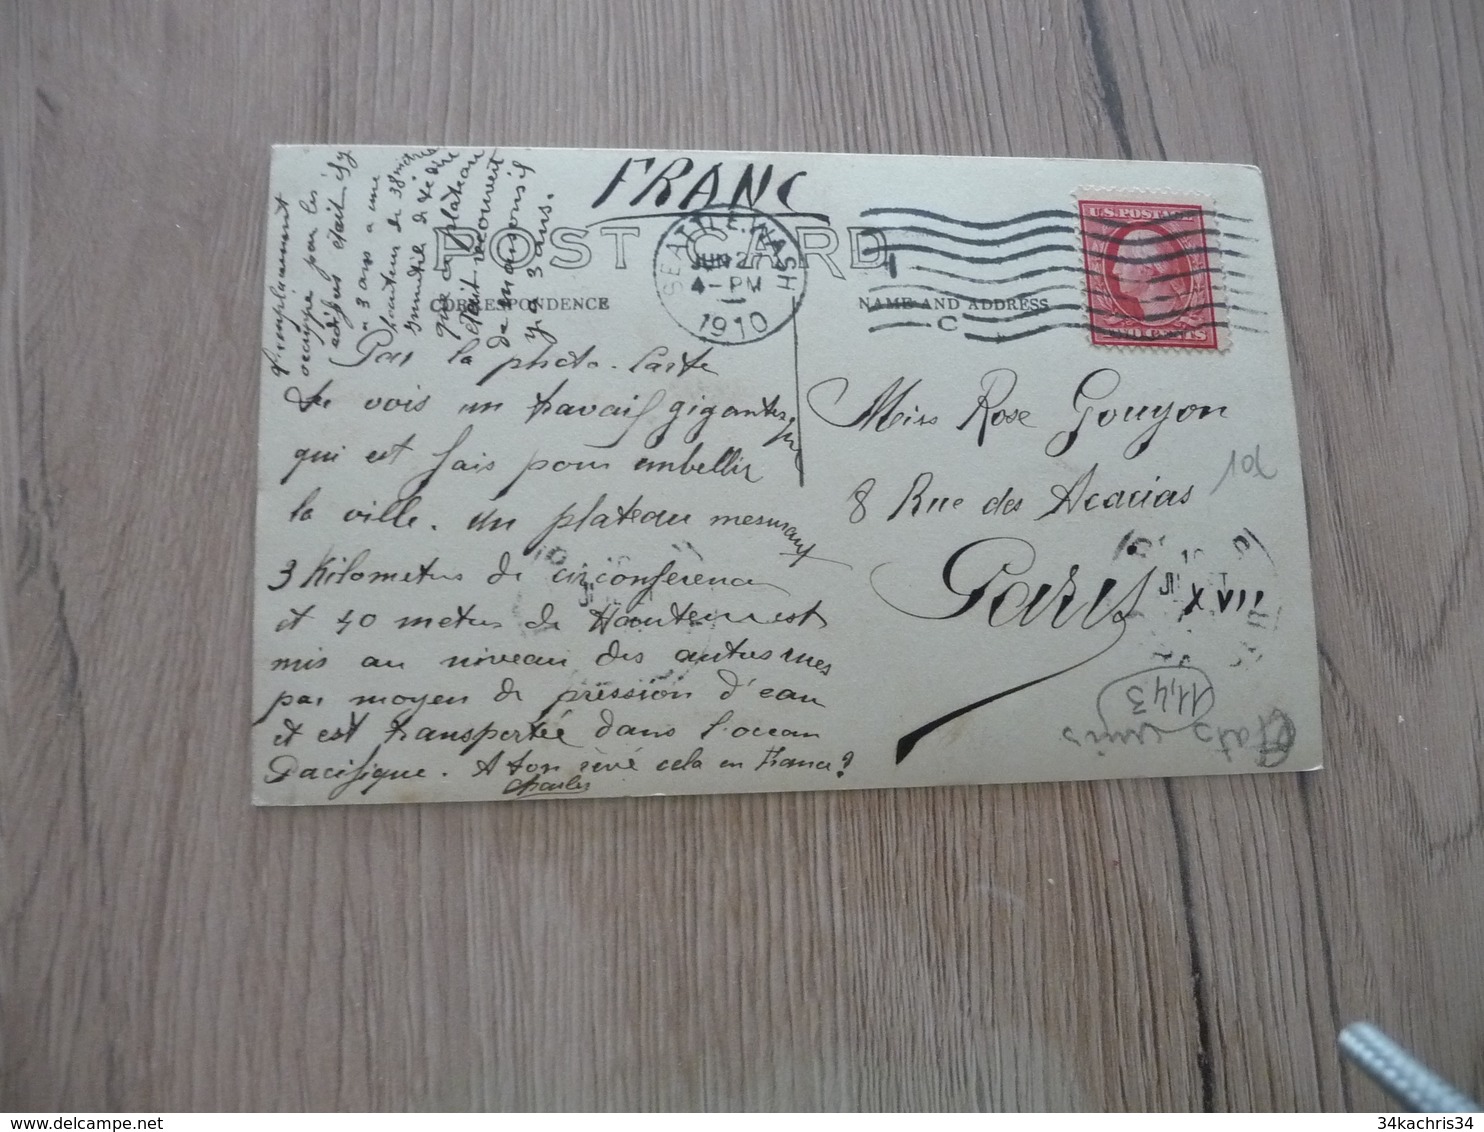 FRANC
POST CARD
CORRESPONDENCE
NAME AND ADDRESS
SEATTLE, WASH
JUN 27
4-PM
1910
C
U.S. POSTAGE
TWO CENTS
Par la photo-Carte
tu vois un travail gigantesque
qui est fais pour embellir
la ville. un plateau mesurant
3 Kilometres de circonférence
et 40 metres de Hauteur est
mis au niveau des autres rues
par moyen de pression d'eau
et est transportée dans l'ocean
Pacifique. A ton rêvé cela en France?
Charles
l'emplacement
occupé par les
édifices était il y
a 3 ans a une
hauteur de 38 metres
inutile de te dire
que ce plateau
était recouvert
de maisons il
y a 3 ans.
Miss Rose Gouyon
8 Rue des Acacias
Paris XVII
10
11,43
Etats unis
34kachris34